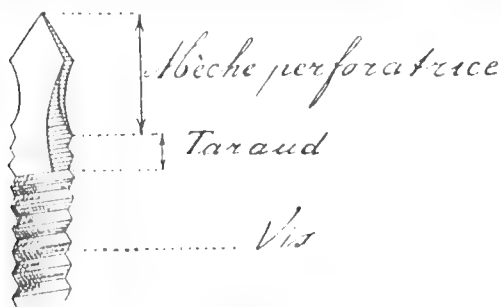 Mèche perforatrice
Taraud
Vis